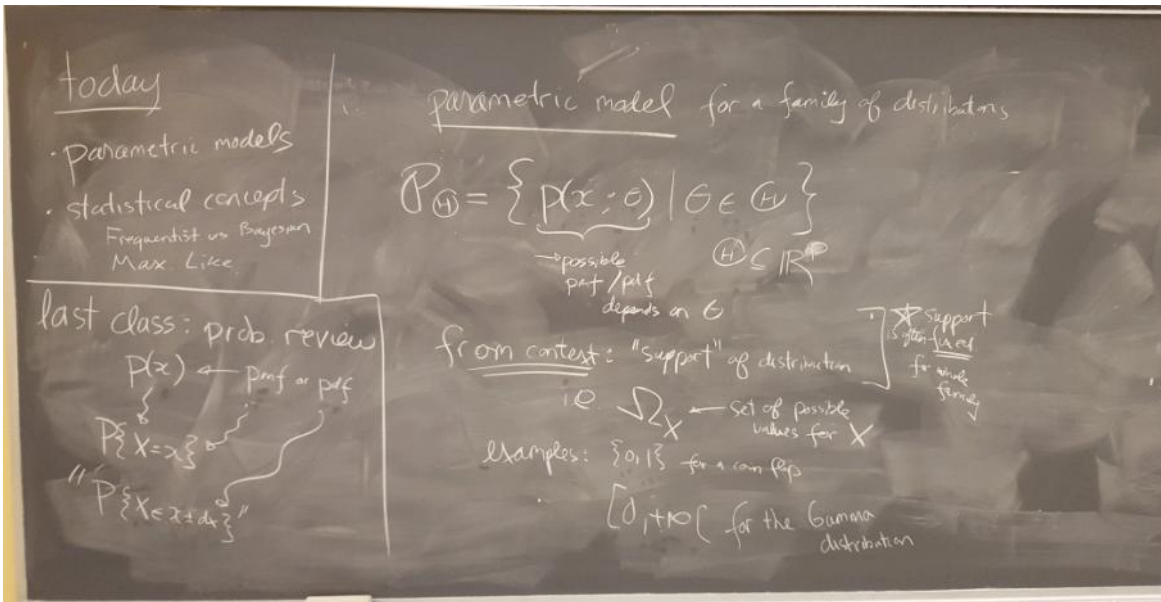 today
· parametric models
· statistical concepts
Frequentist vs Bayesian
Max. Like.
last class: prob. review
p(x) ← pmf or pdf
P{X=x}
"P{X∈x±dx}"
parametric model for a family of distributions
P_Θ = { p(x;θ) | θ ∈ Θ }
→ possible
pmf/pdf
depends on θ
Θ ⊆ ℝ^p
from context: "support" of distribution
i.e. Ω_X ← set of possible
values for X
★ support
is often fixed
for whole
family
examples: {0,1} for a coin flip
[0,+∞[ for the Gamma
distribution